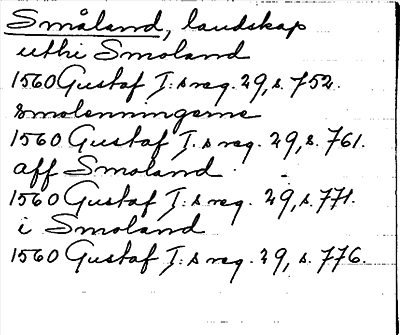 Småland, landskap
uthi Smoland
1560 Gustaf I:s reg. 29, s. 752.
Smolenningerne
1560 Gustaf I:s reg. 29, s. 761.
aff Smoland
1560 Gustaf I:s reg. 29, s. 771.
i Smoland
1560 Gustaf I:s reg. 29, s. 776.